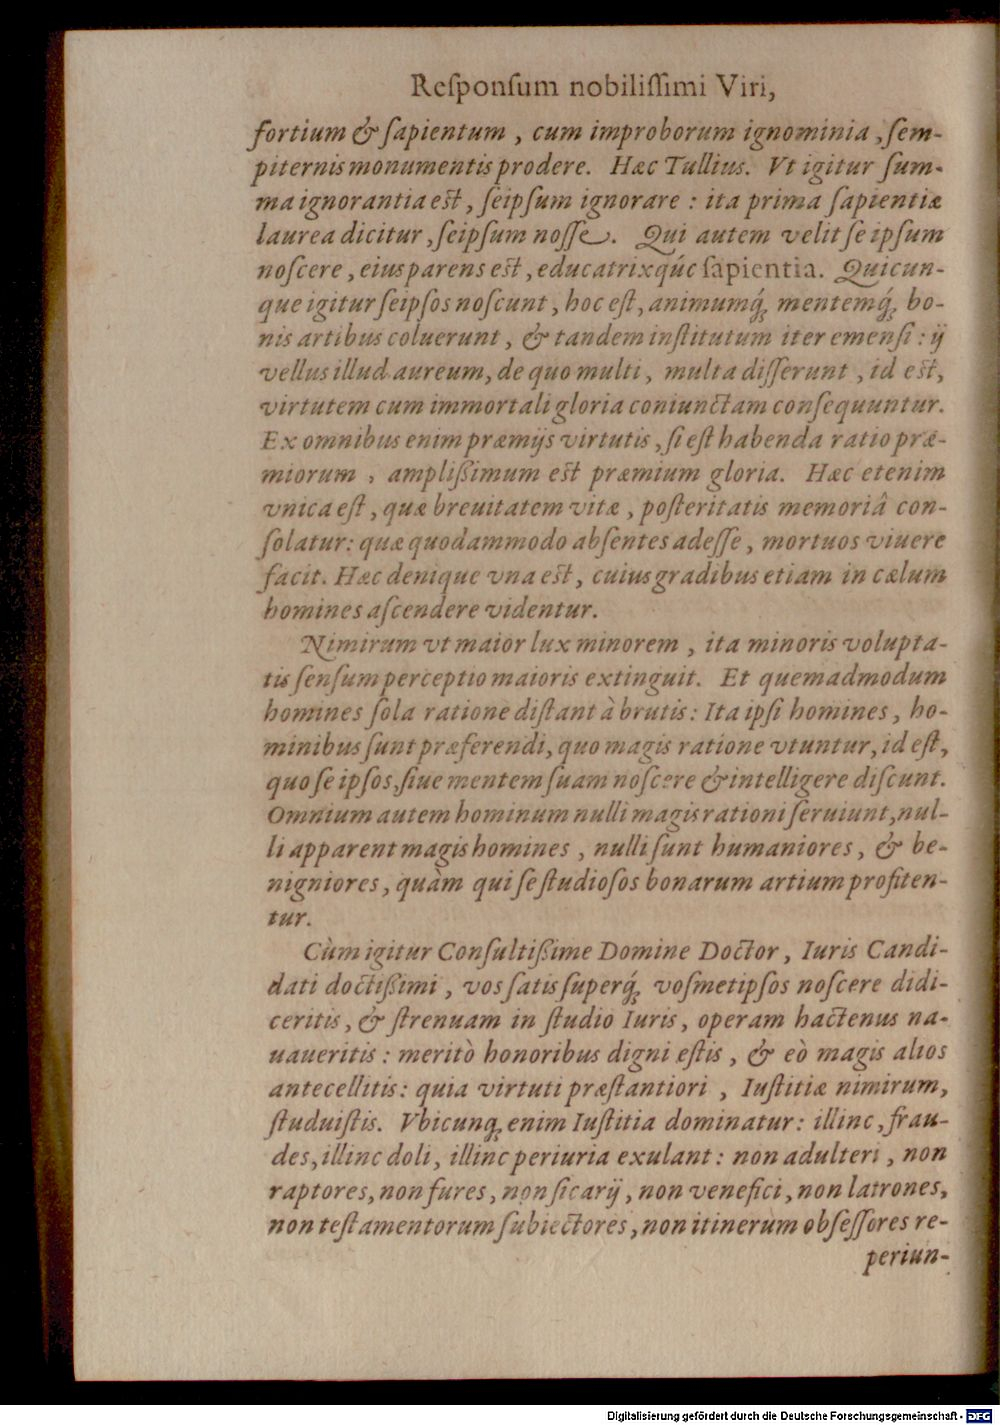 Reſponſum nobiliſſimi Viri,
fortium & ſapientum, cum improborum ignominia, ſem-
piternis monumentis prodere. Hæc Tullius. Vt igitur ſum-
ma ignorantia eſt, ſeipſum ignorare: ita prima ſapientiæ
laurea dicitur, ſeipſum noſſe. Qui autem velit ſe ipſum
noſcere, eius parens eſt, educatrixq́; ſapientia. Quicun-
que igitur ſeipſos noſcunt, hoc eſt, animumq́; mentemq́; bo-
nis artibus coluerunt, & tandem inſtitutum iter emenſi: ij
vellus illud aureum, de quo multi, multa diſſerunt, id eſt,
virtutem cum immortali gloria coniunctam conſequuntur.
Ex omnibus enim præmijs virtutis, ſi eſt habenda ratio præ-
miorum, ampliſsimum eſt præmium gloria. Hæc etenim
vnica eſt, quæ breuitatem vitæ, poſteritatis memoriâ con-
ſolatur: quæ quodammodo abſentes adeſſe, mortuos viuere
facit. Hæc denique vna eſt, cuius gradibus etiam in cælum
homines aſcendere videntur.
Nimirum vt maior lux minorem, ita minoris volupta-
tis ſenſum perceptio maioris extinguit. Et quemadmodum
homines ſola ratione diſtant à brutis: Ita ipſi homines, ho-
minibus ſunt præferendi, quo magis ratione vtuntur, id eſt,
quo ſe ipſos, ſiue mentem ſuam noſcere & intelligere diſcunt.
Omnium autem hominum nulli magis rationi ſeruiunt, nul-
li apparent magis homines, nulli ſunt humaniores, & be-
nigniores, quàm qui ſe ſtudioſos bonarum artium profiten-
tur.
Cùm igitur Conſultiſsime Domine Doctor, Iuris Candi-
dati doctiſsimi, vos ſatis ſuperq́; voſmetipſos noſcere didi-
ceritis, & ſtrenuam in ſtudio Iuris, operam hactenus na-
uaueritis: meritò honoribus digni eſtis, & eò magis alios
antecellitis: quia virtuti præſtantiori, Iuſtitiæ nimirum,
ſtuduiſtis. Vbicunq; enim Iuſtitia dominatur: illinc, frau-
des, illinc doli, illinc periuria exulant: non adulteri, non
raptores, non fures, non ſicarij, non venefici, non latrones,
non teſtamentorum ſubiectores, non itinerum obſeſſores re-
periun-
Digitalisierung gefördert durch die Deutsche Forschungsgemeinschaft - DFG